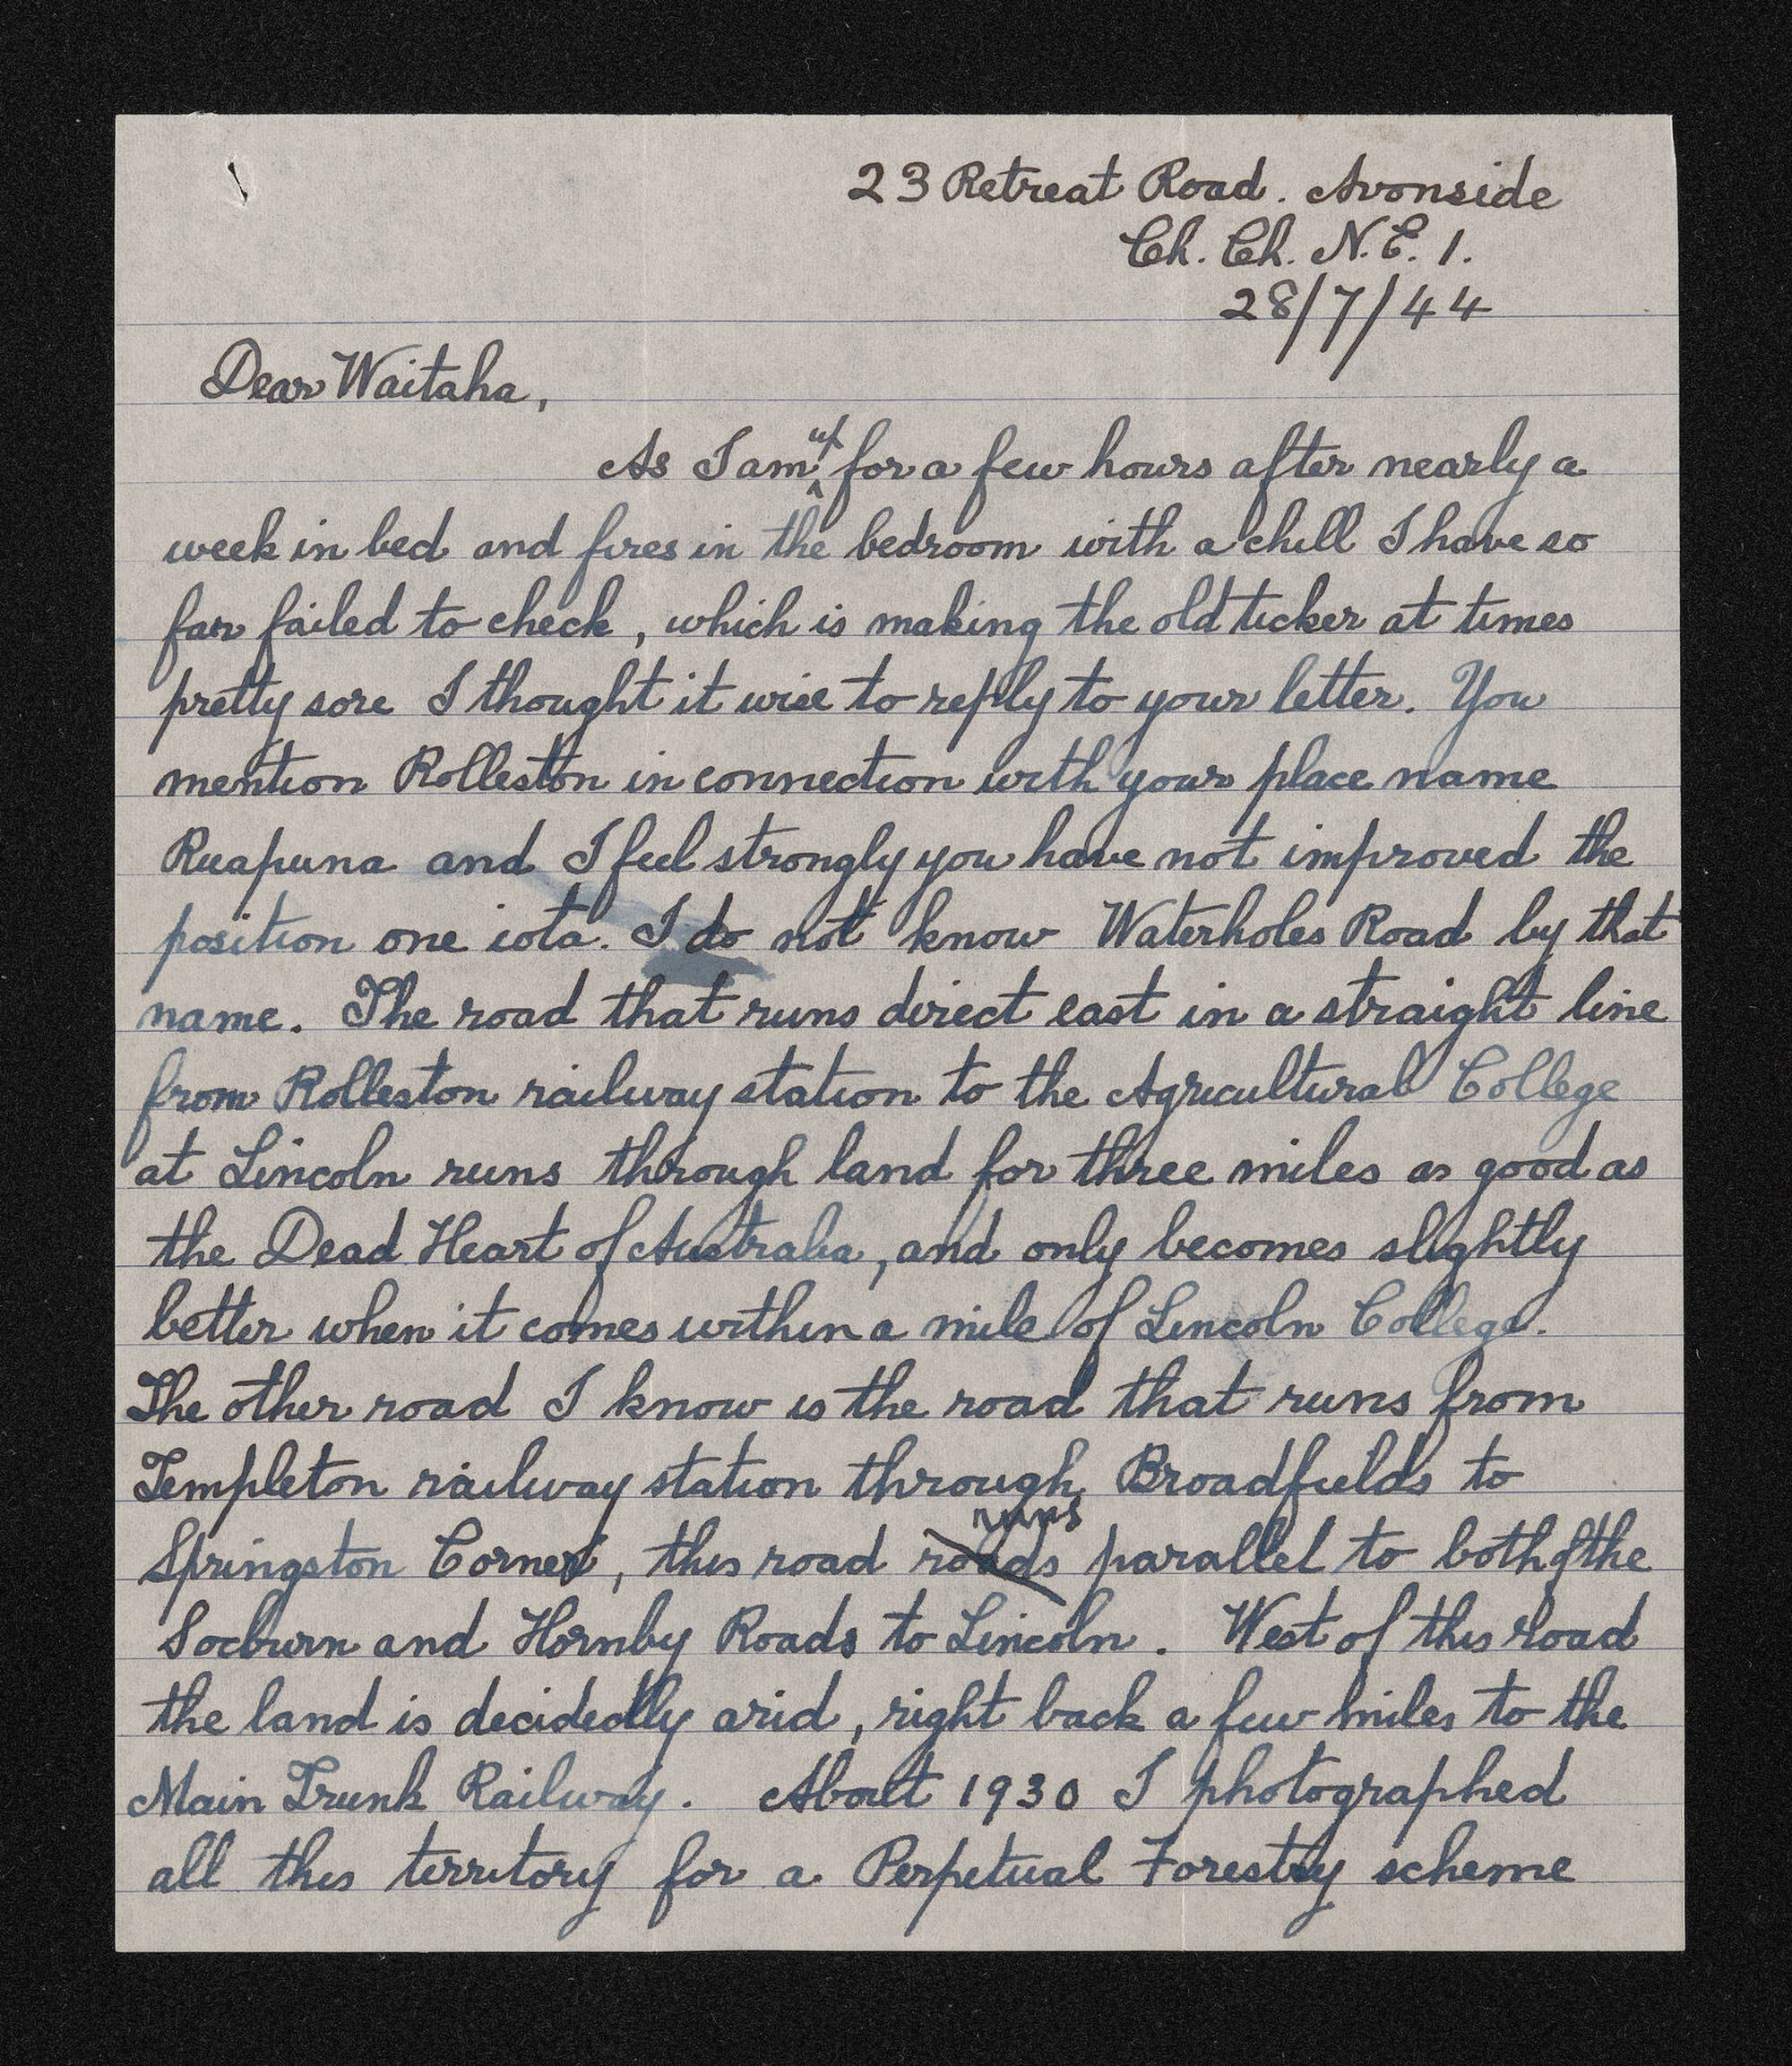 23 Retreat Road. Avonside
Ch. Ch. N.E. 1.
28/7/44
Dear Waitaha,
As I am up for a few hours after nearly a
week in bed and fires in the bedroom with a chill I have so
far failed to check, which is making the old ticker at times
pretty sore I thought it wise to reply to your letter. You
mention Rolleston in connection with your place name
Ruapuna and I feel strongly you have not improved the
position one iota. I do not know Waterholes Road by that
name. The road that runs direct east in a straight line
from Rolleston railway station to the Agricultural College
at Lincoln runs through land for three miles as good as
the Dead Heart of Australia, and only becomes slightly
better when it comes within a mile of Lincoln College.
The other road I know is the road that runs from
Templeton railway station through Broadfields to
Springston Corner, this road roads runs parallel to both of the
Sockburn and Hornby Roads to Lincoln. West of this road
the land is decidedly arid, right back a few miles to the
Main Trunk Railway. About 1930 I photographed
all this territory for a Perpetual Forestry scheme